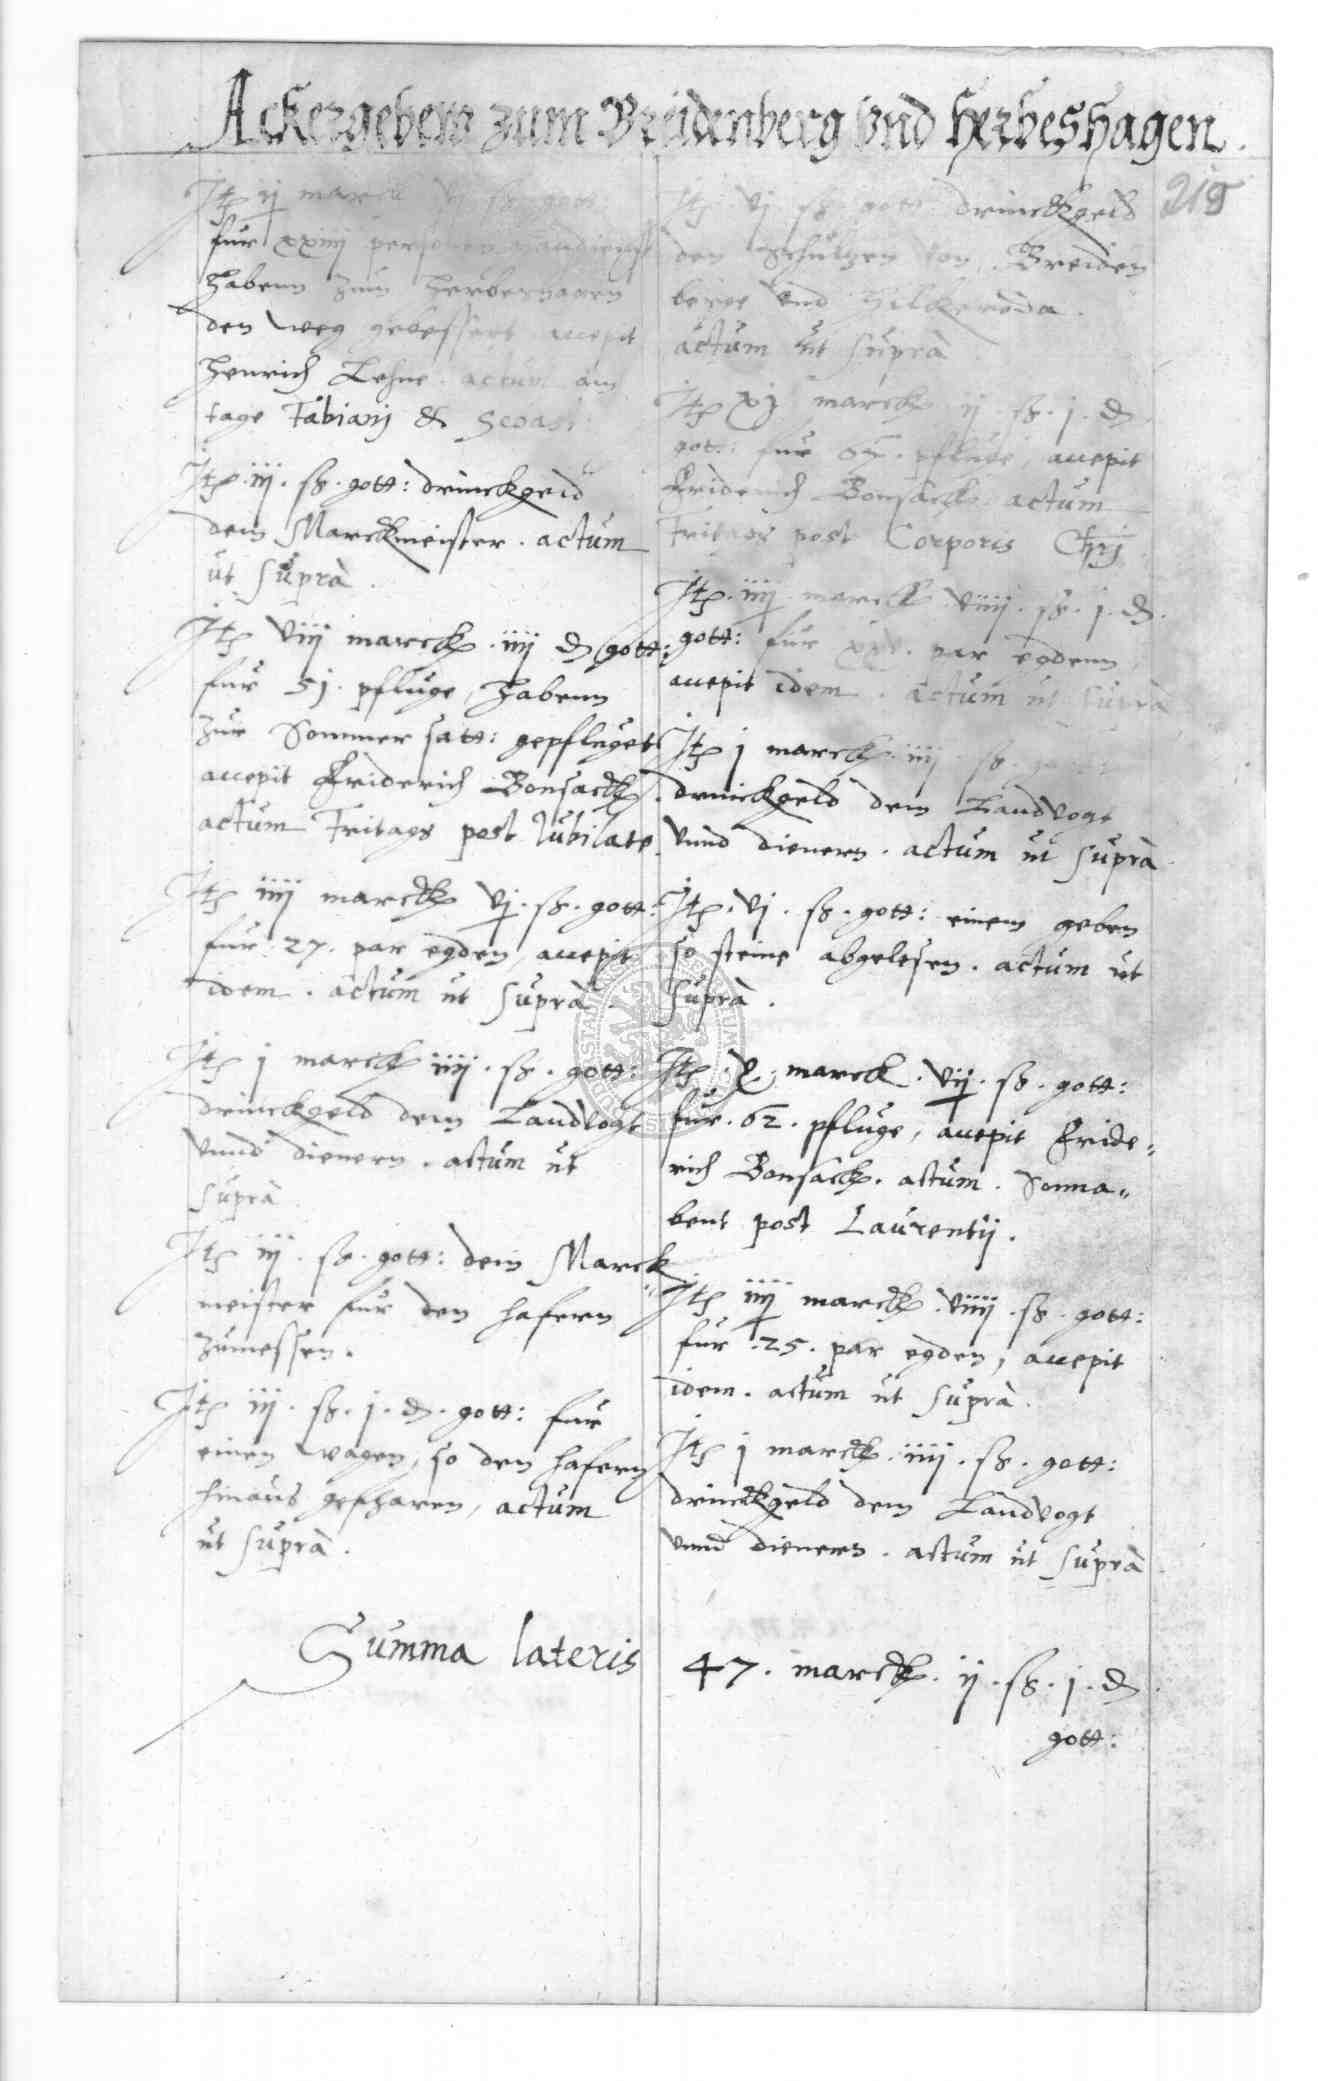 Ackergebew zum Breidenberg vnd Herbeshagen.
219
Itz ij marck vj ß gott:
fur xxiiij personen
habenn zum Herbeshagen
den weg gebessert accepit
Henrich Lehne. actum am
tage Fabianj & Sebast:
Itz iij. ß. gott: drinckgeld
dem Marckmeister. actum
ut supra.
Itz viij marck. iiij ₰ gott:
fur 51. pfluge, habenn
zur Sommer satt: gepfluget
accepit Friderich Bonsack.
actum Fritags post Jubilate.
Itz iiij marck vj. ß. gott:
fur. 27. par egden, accepit
idem. actum ut supra.
Itz j marck iiij. ß. gott:
drinckgeld dem Landvogt
vnnd dienern. actum ut
supra.
Itz iij. ß. gott: dem Marck
meister fur den hafern
zumessen.
Itz iij. ß. j. ₰. gott: fur
einen wagen, so den hafern
hinaus gefharen, actum
ut supra.
Itz vj ß gott: drinckgeld
den Schultzen von Breiden
berge vnd Hilkeroda.
actum ut supra
Itz xj marck ij ß. j. ₰.
gott: fur 67. pfluge, accepit
Friderich Bonsack. actum
Fritags post Corporis Chrj
Itz. iiij marck viiij. ß. j. ₰.
gott: fur par egdenn,
accepit idem. actum ut supra
Itz j marck. iiij ß. gott:
drinckgeld dem Landvogt
vnnd dienern. actum ut supra.
Itz. vj. ß. gott: einem geben
so steine abgelesen. actum ut
supra.
Itz. x. marck. vij. ß. gott:
fur. 62. pfluge, accepit Fride„
rich Bonsack. actum. Sonna„
bent post Laurentij.
Itz iiij marck. viiij. ß. gott:
fur. 25. par egden, accepit
idem. actum ut supra.
Itz j marck. iiij. ß. gott:
drinckgeld dem Landvogt
vnnd dienern. actum ut supra.
Summa lateris 47. marck. ij. ß. j. ₰.
gott: